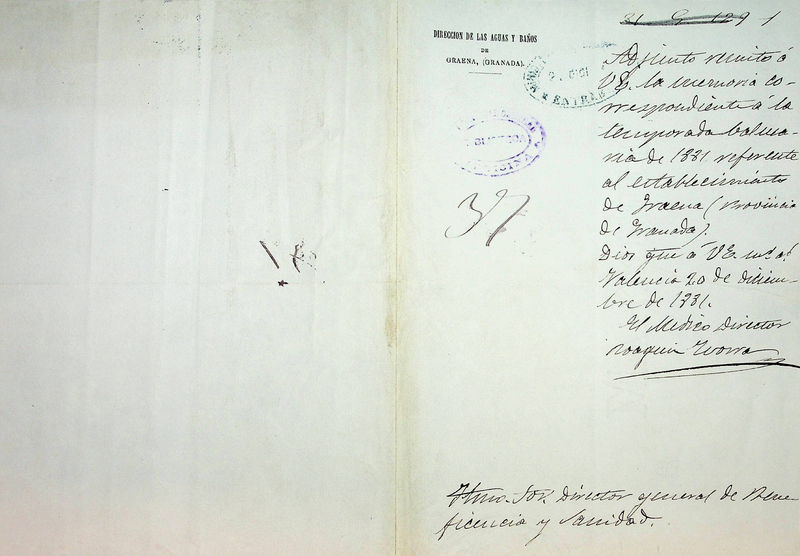 DIRECCION DE LAS AGUAS Y BAÑOS
DE
GRAENA, (GRANADA).
ENTRA
37
Adjunto remito á
V.E. la memoria co-
rrespondiente á la
temporada balnea-
ria de 1881 referente
al establecimiento
de Graena (Provincia
de Granada).
Dios gue á V.E. ms as
Valencia 20 de diciem-
bre de 1881.
El Medico Director
Joaquin Ivorra
Ilmo. Sor. Director general de Bene
ficencia y Sanidad.